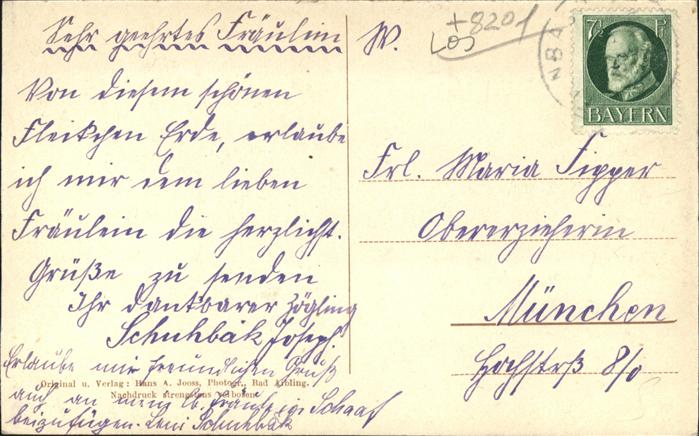 Sehr geehrtes Fräulein
Von diesem schönen
Fleikchen Erde, erlaube
ich mir dem lieben
Fräulein die herzlicht.
Grüße zu senden
Ihr dankbarer Zögling
Schuhbäk Joseph.
Erlaube mir freundlichen Gruß
auch an mein lb. Fräul. Schaaf
beizufügen. Leni Schuhbäk
Original u. Verlag: Hans A. Jooss, Photogr., Bad Aibling.
Nachdruck strengstens verboten
W.
+8201
LOS
7½ P
BAYERN
NBA
Frl. Maria Fipper
Obererzieherin
München
Hochstrß 8/0